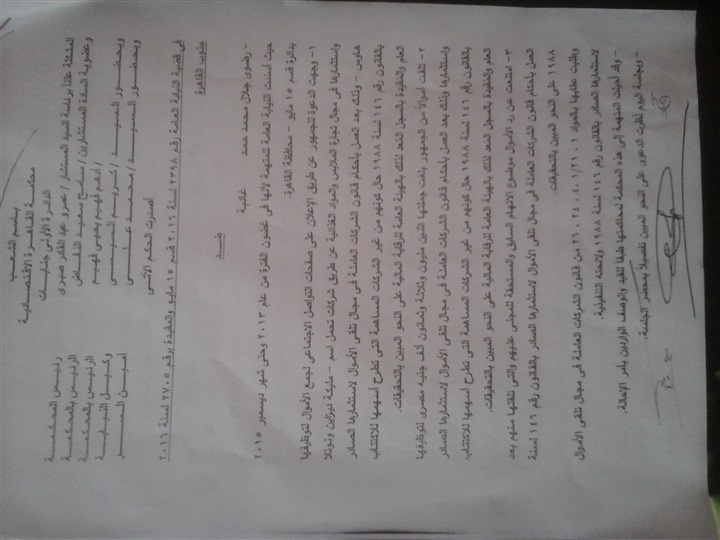 باسم الشعب
محكمة القاهرة الاقتصادية
الدائرة الأولى جنايات
المشكلة علناً برئاسة السيد المستشار / عمرو عبد القادر صبرى رئيس المحكمة
وعضوية السادة المستشارين / سامح سعيد الرئيس بالمحكمة
/ أدهم فهيم يحيى فهيم الرئيس بالمحكمة
وبحضور السيد / كريم وكيل النيابة
وبحضور السيد / محمد أمين السر
أصدرت الحكم الأتى
فى قضية النيابة العامة رقم ٢٣٩٨ لسنة ٢٠١٦ قسم ١٥ مايو والمقيدة برقم ٢٧٠٥ لسنة ٢٠١٦
جنوب القاهرة
ضد
- رضوى جلال محمد حمد غائبة
حيث أسندت النيابة العامة للمتهمة لأنها فى غضون الفترة من عام ٢٠١٣ وحتى شهر ديسمبر ٢٠١٥
بدائرة قسم ١٥ مايو - محافظة القاهرة.
١- وجهت الدعوة للجمهور عن طريق الإعلان على صفحات التواصل الاجتماعى لجمع الأموال لتوظيفها
واستثمارها فى مجال تجارة الملابس والمواد الغذائية عن طريق شركات تحمل اسم - مليكة ديزاين ونوتلا
هاوس - وذلك بعد العمل بأحكام قانون الشركات العاملة فى مجال تلقى الأموال لاستثمارها الصادر
بالقانون رقم ١٤٦ لسنة ١٩٨٨ حال كونهم من غير الشركات المساهمة التى تطرح أسهمها للاكتتاب
العام والمقيدة بالسجل المعد لذلك بالهيئة العامة للرقابة المالية على النحو المبين بالتحقيقات.
٢- تلقت أموالاً من الجمهور بلغت جملتها اثنين مليون وثلاثة وثمانون ألف جنيه مصرى لتوظيفها
واستثمارها وذلك بعد العمل بأحكام قانون الشركات العاملة فى مجال تلقى الأموال لاستثمارها الصادر
بالقانون رقم ١٤٦ لسنة ١٩٨٨ حال كونهم من غير الشركات المساهمة التى تطرح أسهمها للاكتتاب
العام والمقيدة بالسجل المعد لذلك بالهيئة العامة للرقابة المالية على النحو المبين بالتحقيقات.
٣- امتنعت عن رد الأموال موضوع الاتهام السابق والمستحقة للمجنى عليهم والتى تلقتها منهم بعد
العمل بأحكام قانون الشركات العاملة فى مجال تلقى الأموال لاستثمارها الصادر بالقانون رقم ١٤٦ لسنة
١٩٨٨ على النحو المبين بالتحقيقات.
وطلبت عقابها بالمواد ١، ٢١/١، ٢٤، ٢٦ من قانون الشركات العاملة فى مجال تلقى الأموال
لاستثمارها الصادر بالقانون رقم ١٤٦ لسنة ١٩٨٨ ولائحته التنفيذية.
- وقد أحيلت المتهمة إلى هذه المحكمة لمحاكمتها طبقا للقيد والوصف الواردين بأمر الإحالة.
- وبجلسة اليوم نظرت الدعوى على النحو المبين تفصيلاً بمحضر الجلسة.